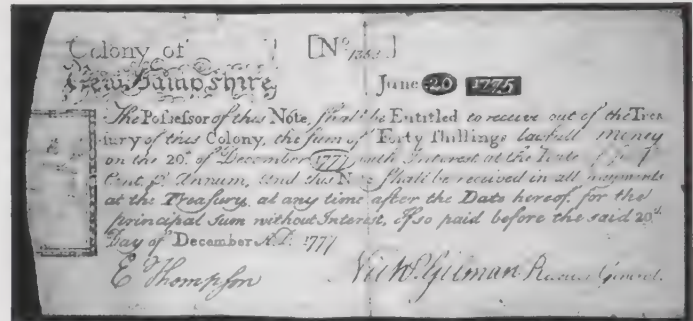 Colony of [No 1353]
New Hampshire, June 20 1775
The Possessor of this Note, shall be Entitled to receive out of the Trea
sury of this Colony, the Sum of Forty Shillings lawfull money
on the 20th of December 1777 with Interest at the Rate
Cent pr Annum, and this Note Shall be received in all payments
at the Treasury, at any time after the Date hereof, for the
principal Sum without Interest, if so paid before the said 20th
Day of December A.D. 1777
E Thompson Nichs Gilman Receiver General.